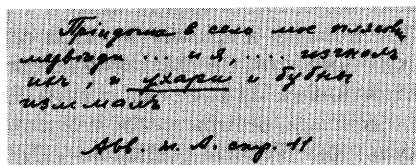 Прiидоша в село мое плясовы
медвѣди ... и я, .... изгналъ
ихъ, и ухари и бубны
изломалъ
Авв. п. А. стр. 11